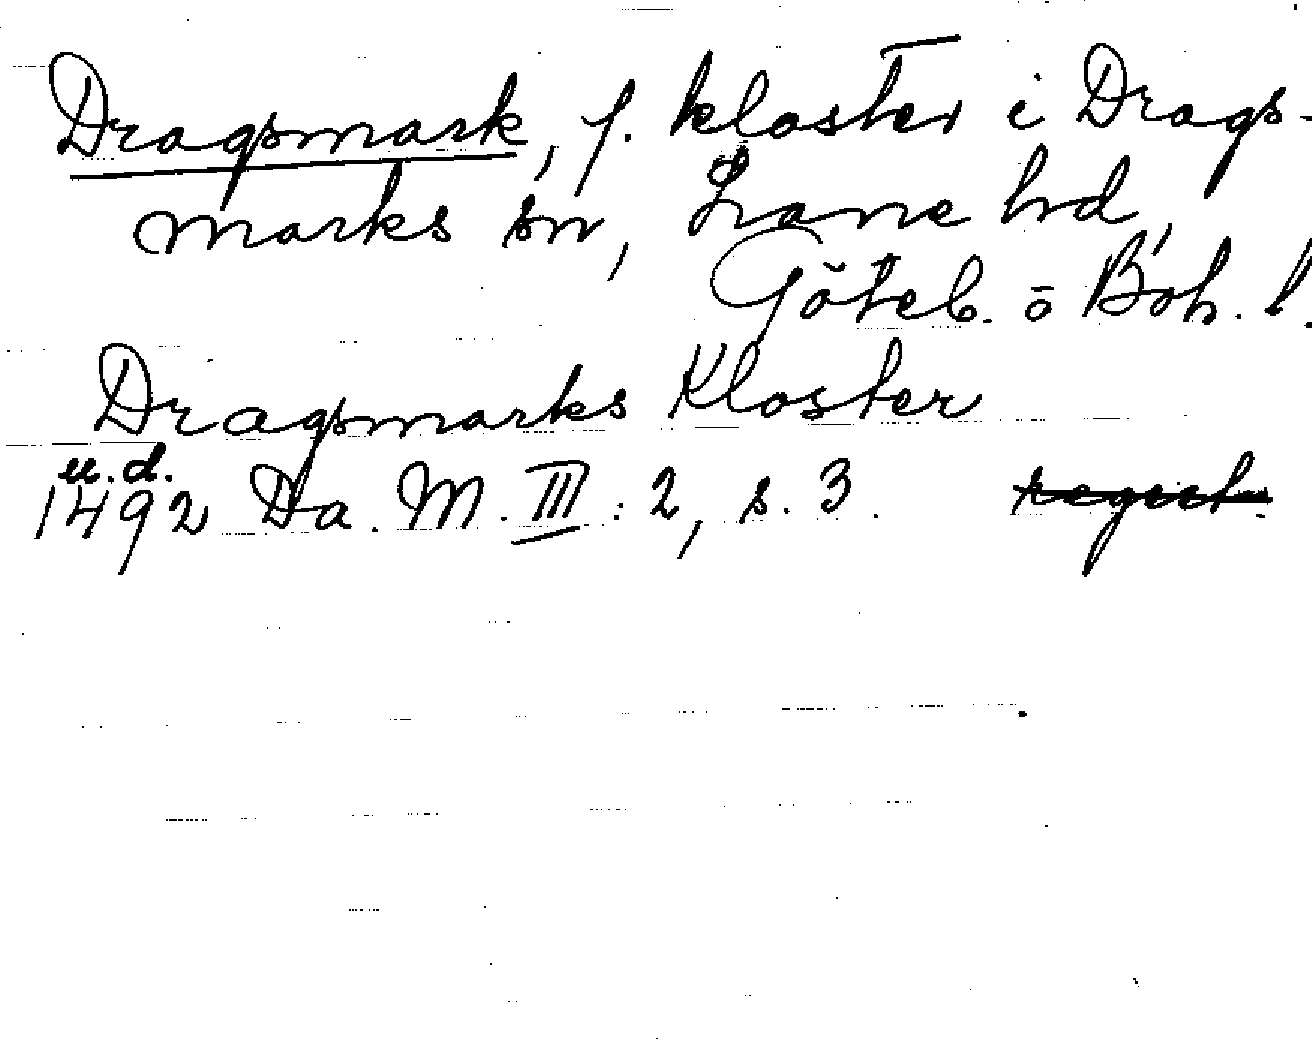 Dragsmark, f. kloster i Drags-
marks sn, Lane hd,
Göteb. o Boh. l.
Dragsmarks Kloster
u.d.
1492 Da. M. III: 2, s. 3. regest.